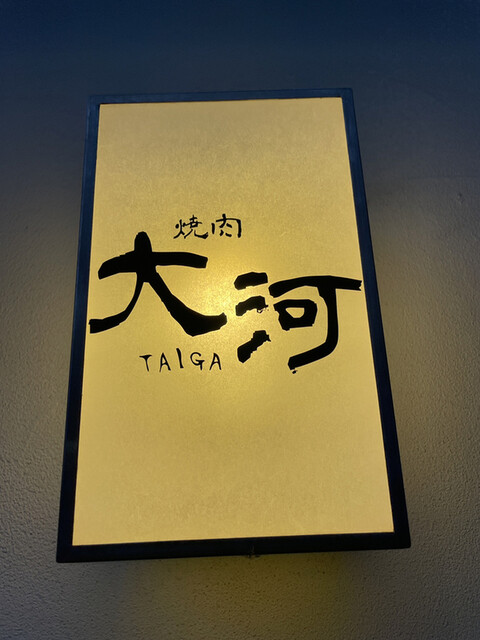 焼肉
大河
TAIGA